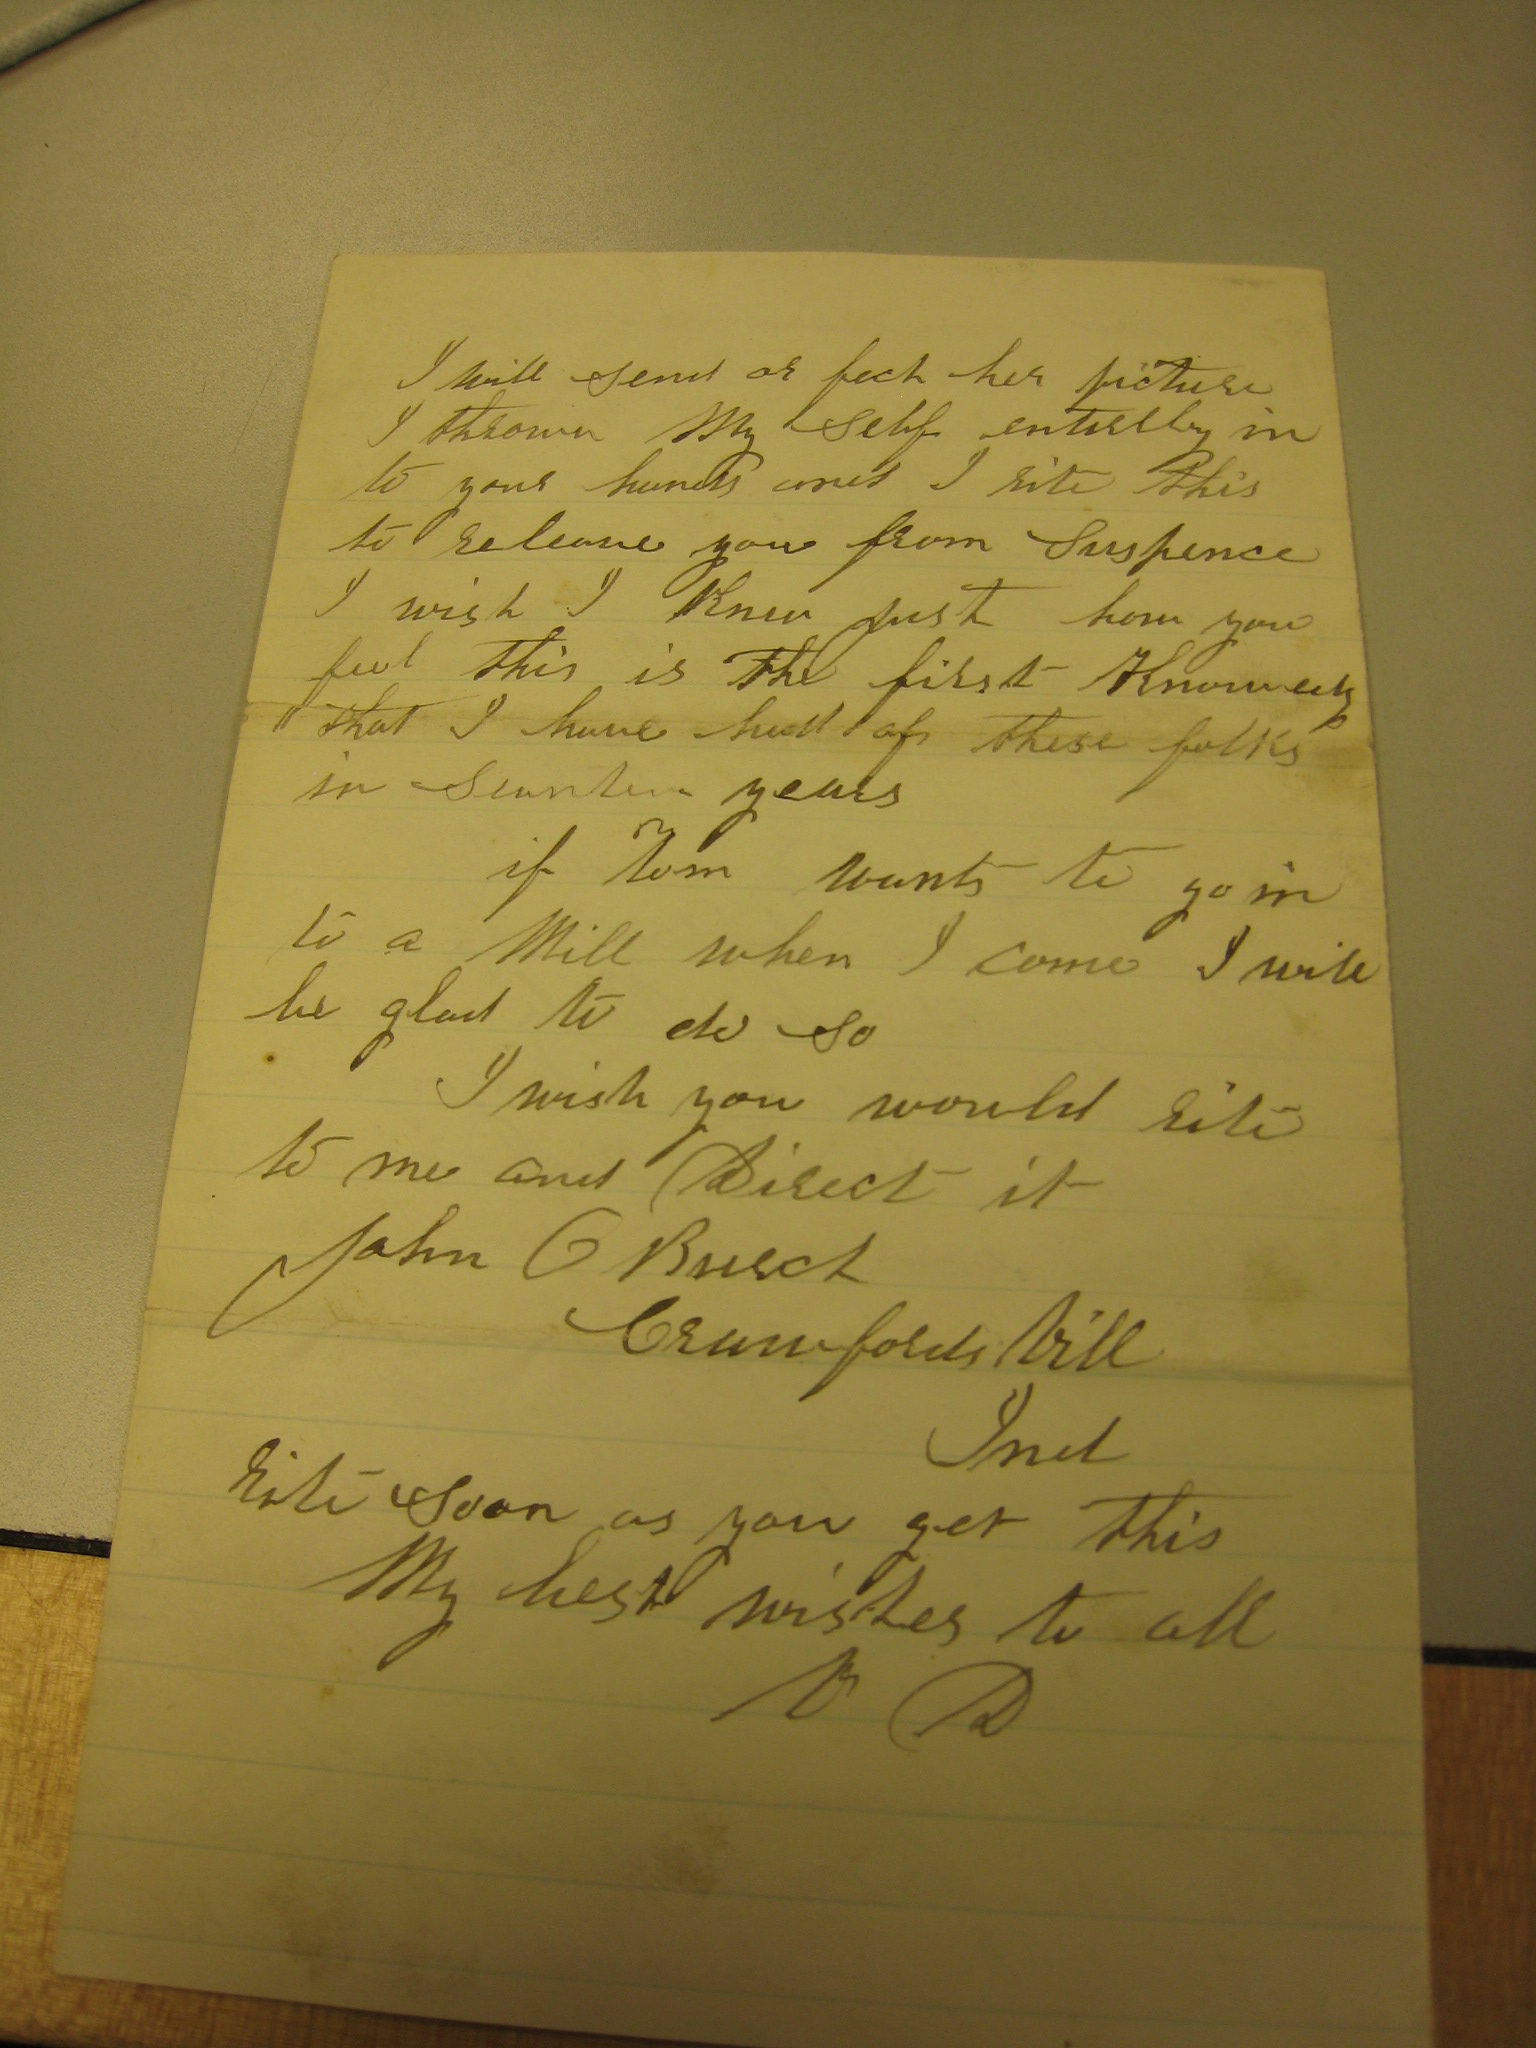 I will send or fech her picture
I throwu My Self entirlby in
to your hands and I rite this
to releave you from Suspence
I wish I Knew just how you
feel this is the first
that I have had of these folks
in years
if Tom wants to go in
to a Mill when I come I will
be glad to do so
I wish you would rite
to me and Direct it
John C Burch
Crawfords Vill
Ind
rite soon as you get this
My best wishes to all
V D